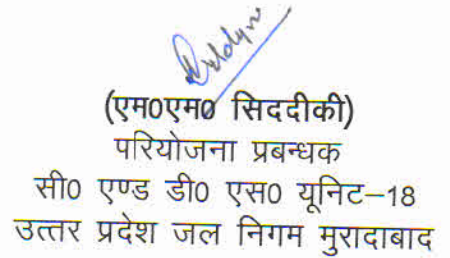 (एम0एम0 सिददीकी)
परियोजना प्रबन्धक
सी0 एण्ड डी0 एस0 यूनिट–18
उत्तर प्रदेश जल निगम मुरादाबाद